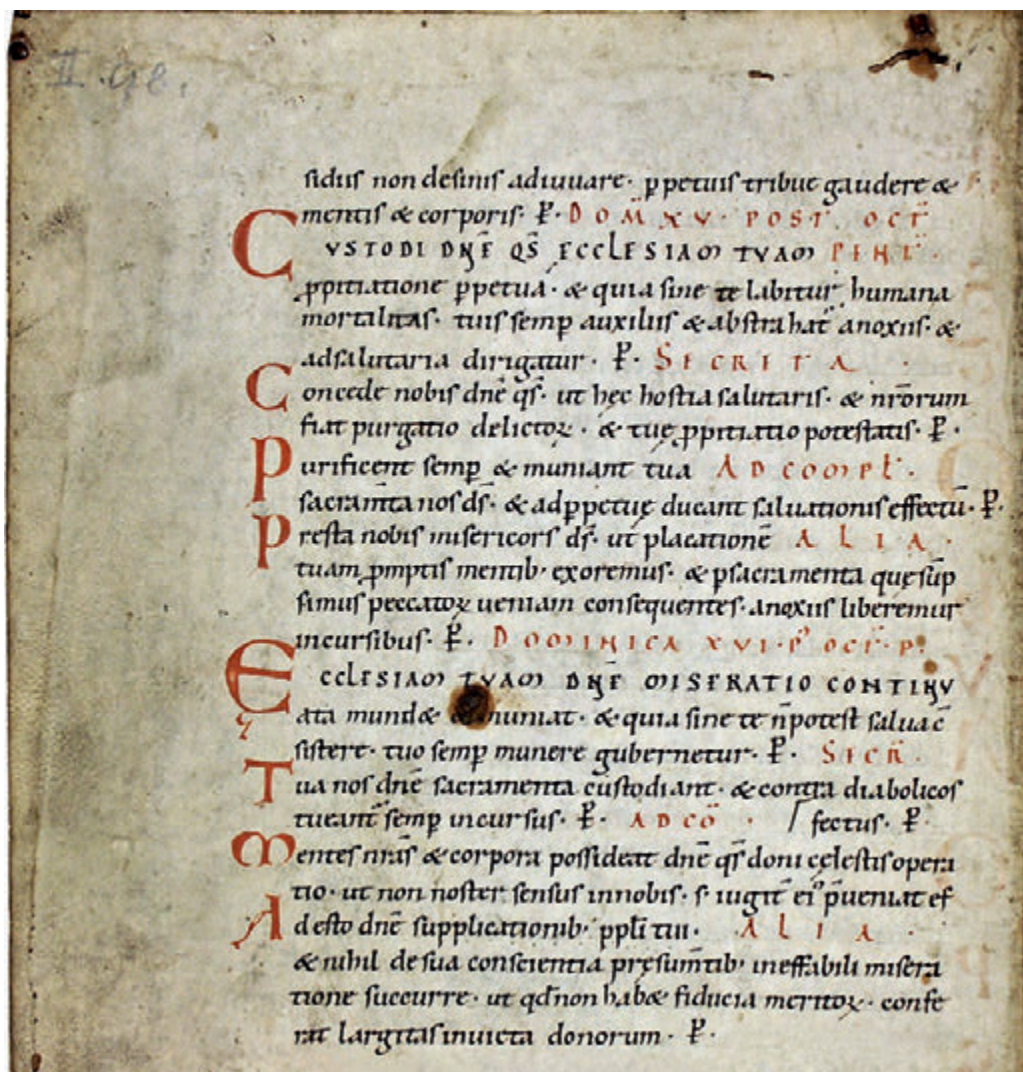 II. 98.
sidiis non desinis adiuuare· ꝑpetuis tribue gaudere &
mentis & corporis· P̶· DOM̄ XV· POST· OCT̄
CUSTODI DN̄E QS̄ ECCLESIAM TUAM PENT̄·
ꝓpitiatione ꝑpetua· & quia sine te labitur humana
mortalitas· tuis semꝑ auxiliis & abstrahat̄ anoxiis· &
adsalutaria dirigatur· P̶· SECRETA·
Concede nobis dn̄e qs̄· ut hęc hostia salutaris· & nr̄orum
fiat purgatio delictoꝝ· & tuę ꝓpitiatio potestatis· P̶·
Purificent semꝑ & muniant tua AD COMPL̄·
sacram̄ta nos ds̄· & adꝑpetuę ducant saluationis effectū· P̶·
Presta nobis misericors ds̄· ut placationē ALIA·
tuam ꝓmptis mentib· exoremus· & ꝑsacramenta quę sūp
simus peccatoꝝ ueniam consequentes· anoxiis liberemur
incursibus· P̶· DOMINICA XVI· P̄ OCT̄· P̄·
ECCLESIAM TUAM DN̄E MISERATIO CONTINU
ata mund& & muniat· & quia sine te n̄potest salua c̄
sistere· tuo semꝑ munere gubernetur· P̶· SECR̄·
Tua nos dn̄e sacramenta custodiant· & contra diabolicos
tueant̄ semꝑ incursus· P̶· AD CŌ· / fectus· P̶·
Mentes nr̄as & corpora possideat dn̄e qs̄ doni cęlestis opera
tio· ut non noster sensus innobis· s· iugit̄ ei᾽ p̄ueniat ef
Adesto dn̄e supplicationib· ppl̄i tui· ALIA·
& nihil desua conscientia pręsum̄tib· ineffabili misera
tione succurre· ut qd̄ non hab& fiducia meritoꝝ· confe
rat largitas inuicta donorum· P̶·